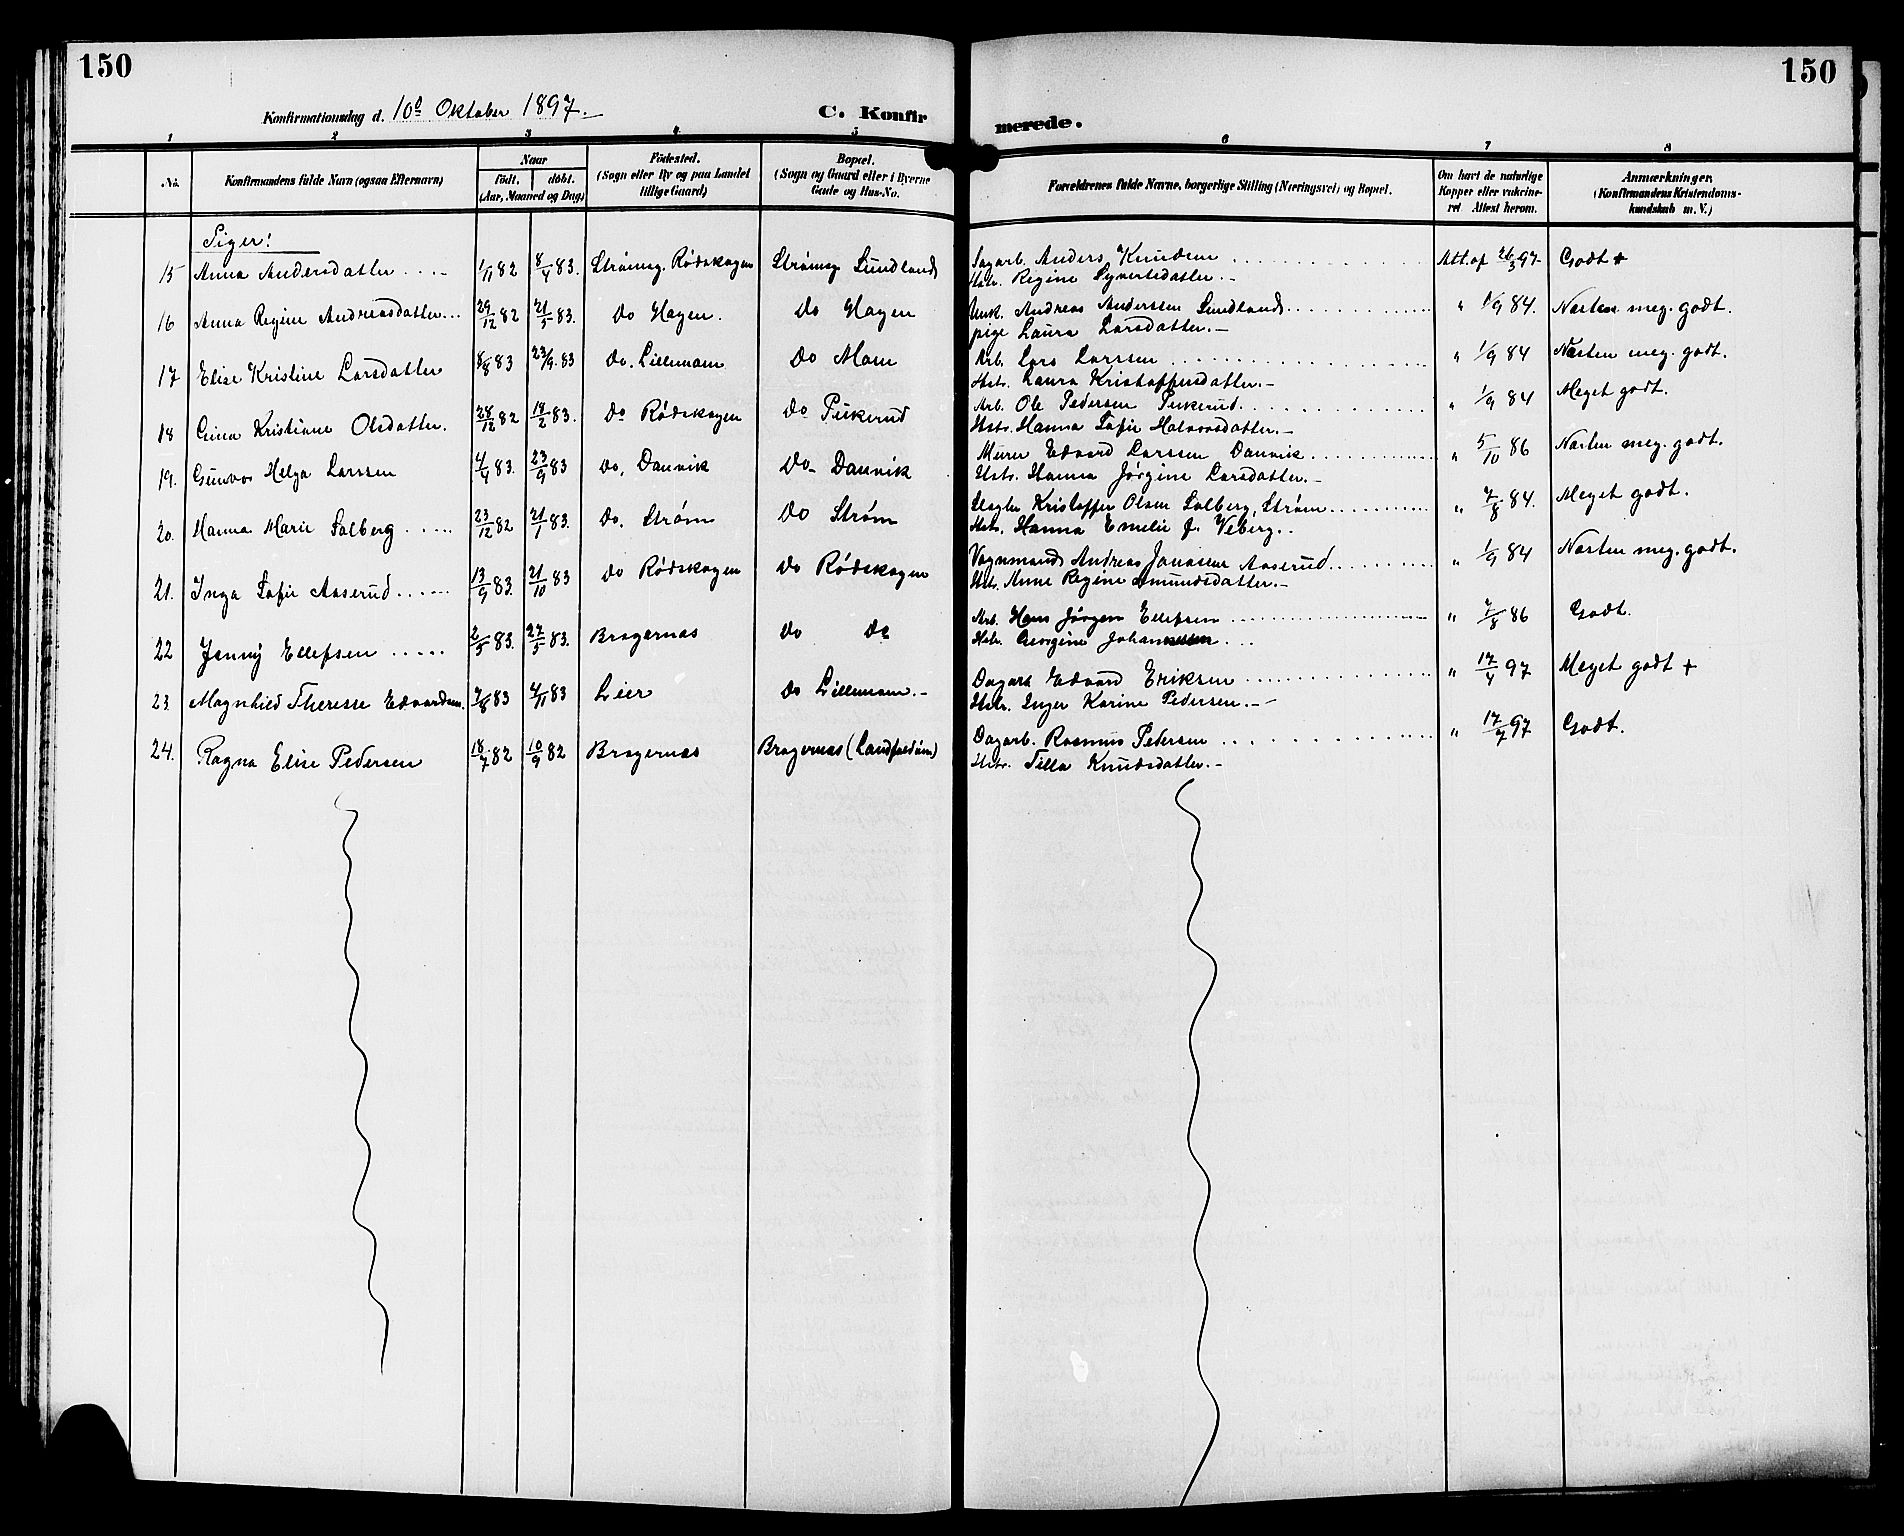 150
150
Konfirmationsdag d. 10de Oktober 1897.
C. Konfir
merede.
1 2 3 4 5 6 7 8
No.
Konfirmandens fulde Navn (ogsaa Efternavn)
Naar
født, døbt.
(Aar, Maaned og Dag)
Fødested.
(Sogn eller By og paa Landet
tillige Gaard)
Bopæl.
(Sogn og Gaard eller i Byerne
Gade og Hus-No.
Forældrenes fulde Navne, borgerlige Stilling (Næringsvei) og Bopæl.
Om havt de naturlige
Kopper eller vakcine-
ret Attest herom.
Anmærkninger.
(Konfirmandens Kristendoms-
kundskab m. V.)
Piger:
15 Anna Andersdatter 1/11 82 8/4 83. Strømsg. Rødskogen Strømsg Sundland Dagarb. Anders Knudsen Att. af 26/3 97 Godt +
Hstr. Regine Syvertsdatter.
16 Anna Regine Andreasdatter 29/12 82 21/5 83. Do Hagen. Do Hagen Unk. Andreas Anderssen Sundland " 1/9 84. Næsten meg. godt.
pige Laura Larsdatter.
17 Elise Kristine Larsdatter 8/8 83 23/9 83 Do. Lillemam Do Mam Arb. Lars Larssen " 1/9 84 Næsten meg. godt.
Hstr. Laura Kristoffersdatter.
18 Gina Kristiane Olsdatter. 28/12 82 18/2 83. Do Rødskogen Do Pukerud Arb. Ole Pedersen Pukerud " 1/9 84 Meget godt.
Hstr. Hanna Sofie Halvorsdatter.
19. Gunvor Helga Larssen 4/4 83. 23/9 83 Do. Danvik Do Danvik Murer Edvard Larssen Danvik " 5/10 86 Næsten meg. godt.
Hstr. Hanna Jørgine Larsdatter.
20. Hanna Marie Solberg 23/12 82 21/1 83. Do. Strøm Do Strøm Kristoffer Olsen Solberg, Strøm " 7/8 84. Meget godt.
Hstr. Hanna Emelie J. Veberg.
21. Inga Sofie Aaserud 13/9 83. 21/10 83 Do Rødskogen Do Rødskogen Vognmand Andreas Janssen Aaserud " 1/9 84 Næsten meg. godt.
Hstr. Anne Regine Amundsdatter.
22 Jenny Ellefsen 2/5 83. 27/5 83. Bragernæs Do Do Arb. Hans Jørgen Ellefsen " 7/8 86 Godt.
Hstr. Georgine Johannessen
23. Magnhild Theresse Edvardsen. 7/8 83 4/11 83 Lier Do Lillemam. Dagarb Edvard Eriksen " 17/4 97 Meget godt +
Hstr. Inger Karine Pedersen.
24. Ragna Elise Pedersen 18/7 82 10/9 82 Bragernæs Bragernæs (Landfaldøen) Dagarb. Rasmus Pedersen " 17/7 97 Godt.
Hstr. Tilla Knudsdatter.